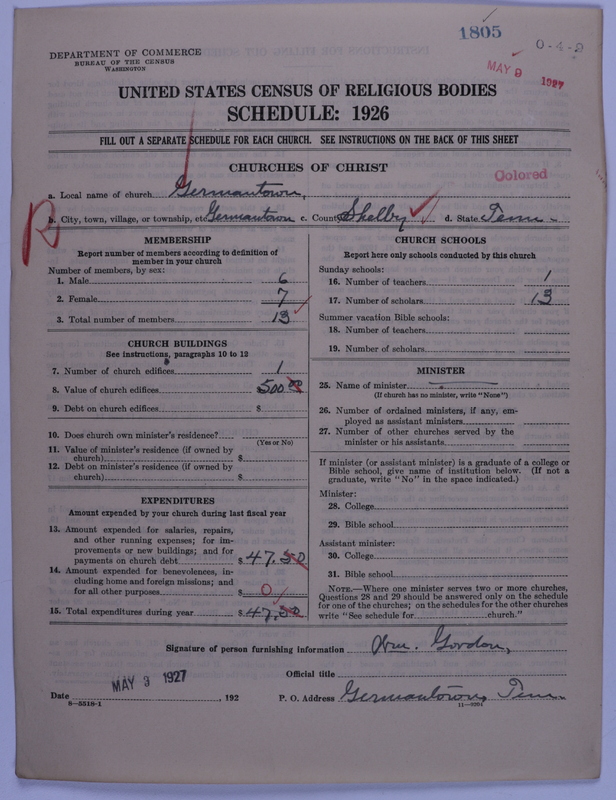 1805
0-4-9
DEPARTMENT OF COMMERCE
BUREAU OF THE CENSUS
WASHINGTON
MAY 9 1927
UNITED STATES CENSUS OF RELIGIOUS BODIES
SCHEDULE: 1926
FILL OUT A SEPARATE SCHEDULE FOR EACH CHURCH. SEE INSTRUCTIONS ON THE BACK OF THIS SHEET
CHURCHES OF CHRIST
Colored
a. Local name of church Germantown,
b. City, town, village, or township, etc Germantown c. County Shelby d. State Tenn.
MEMBERSHIP
Report number of members according to definition of
member in your church
Number of members, by sex:
1. Male 6
2. Female 7
3. Total number of members 13
CHURCH BUILDINGS
See instructions, paragraphs 10 to 12
7. Number of church edifices 1
8. Value of church edifices 500 00
9. Debt on church edifices $
10. Does church own minister's residence?
(Yes or No)
11. Value of minister's residence (if owned by
church) $
12. Debt on minister's residence (if owned by
church) $
EXPENDITURES
Amount expended by your church during last fiscal year
13. Amount expended for salaries, repairs,
and other running expenses; for im-
provements or new buildings; and for
payments on church debt $ 47.50
14. Amount expended for benevolences, in-
cluding home and foreign missions; and
for all other purposes $ 0
15. Total expenditures during year $ 47.50
CHURCH SCHOOLS
Report here only schools conducted by this church
Sunday schools:
16. Number of teachers 1
17. Number of scholars 13
Summer vacation Bible schools:
18. Number of teachers
19. Number of scholars
MINISTER
25. Name of minister
(If church has no minister, write "None")
26. Number of ordained ministers, if any, em-
ployed as assistant ministers
27. Number of other churches served by the
minister or his assistants
If minister (or assistant minister) is a graduate of a college or
Bible school, give name of institution below. (If not a
graduate, write "No" in the space indicated.)
Minister:
28. College
29. Bible school
Assistant minister:
30. College
31. Bible school
NOTE.—Where one minister serves two or more churches,
Questions 28 and 29 should be answered only on the schedule
for one of the churches; on the schedules for the other churches
write "See schedule for church."
Signature of person furnishing information Wm. Gordon,
Official title
MAY 3 1927
Date , 192 P. O. Address Germantown, Tenn.
8-5518-1